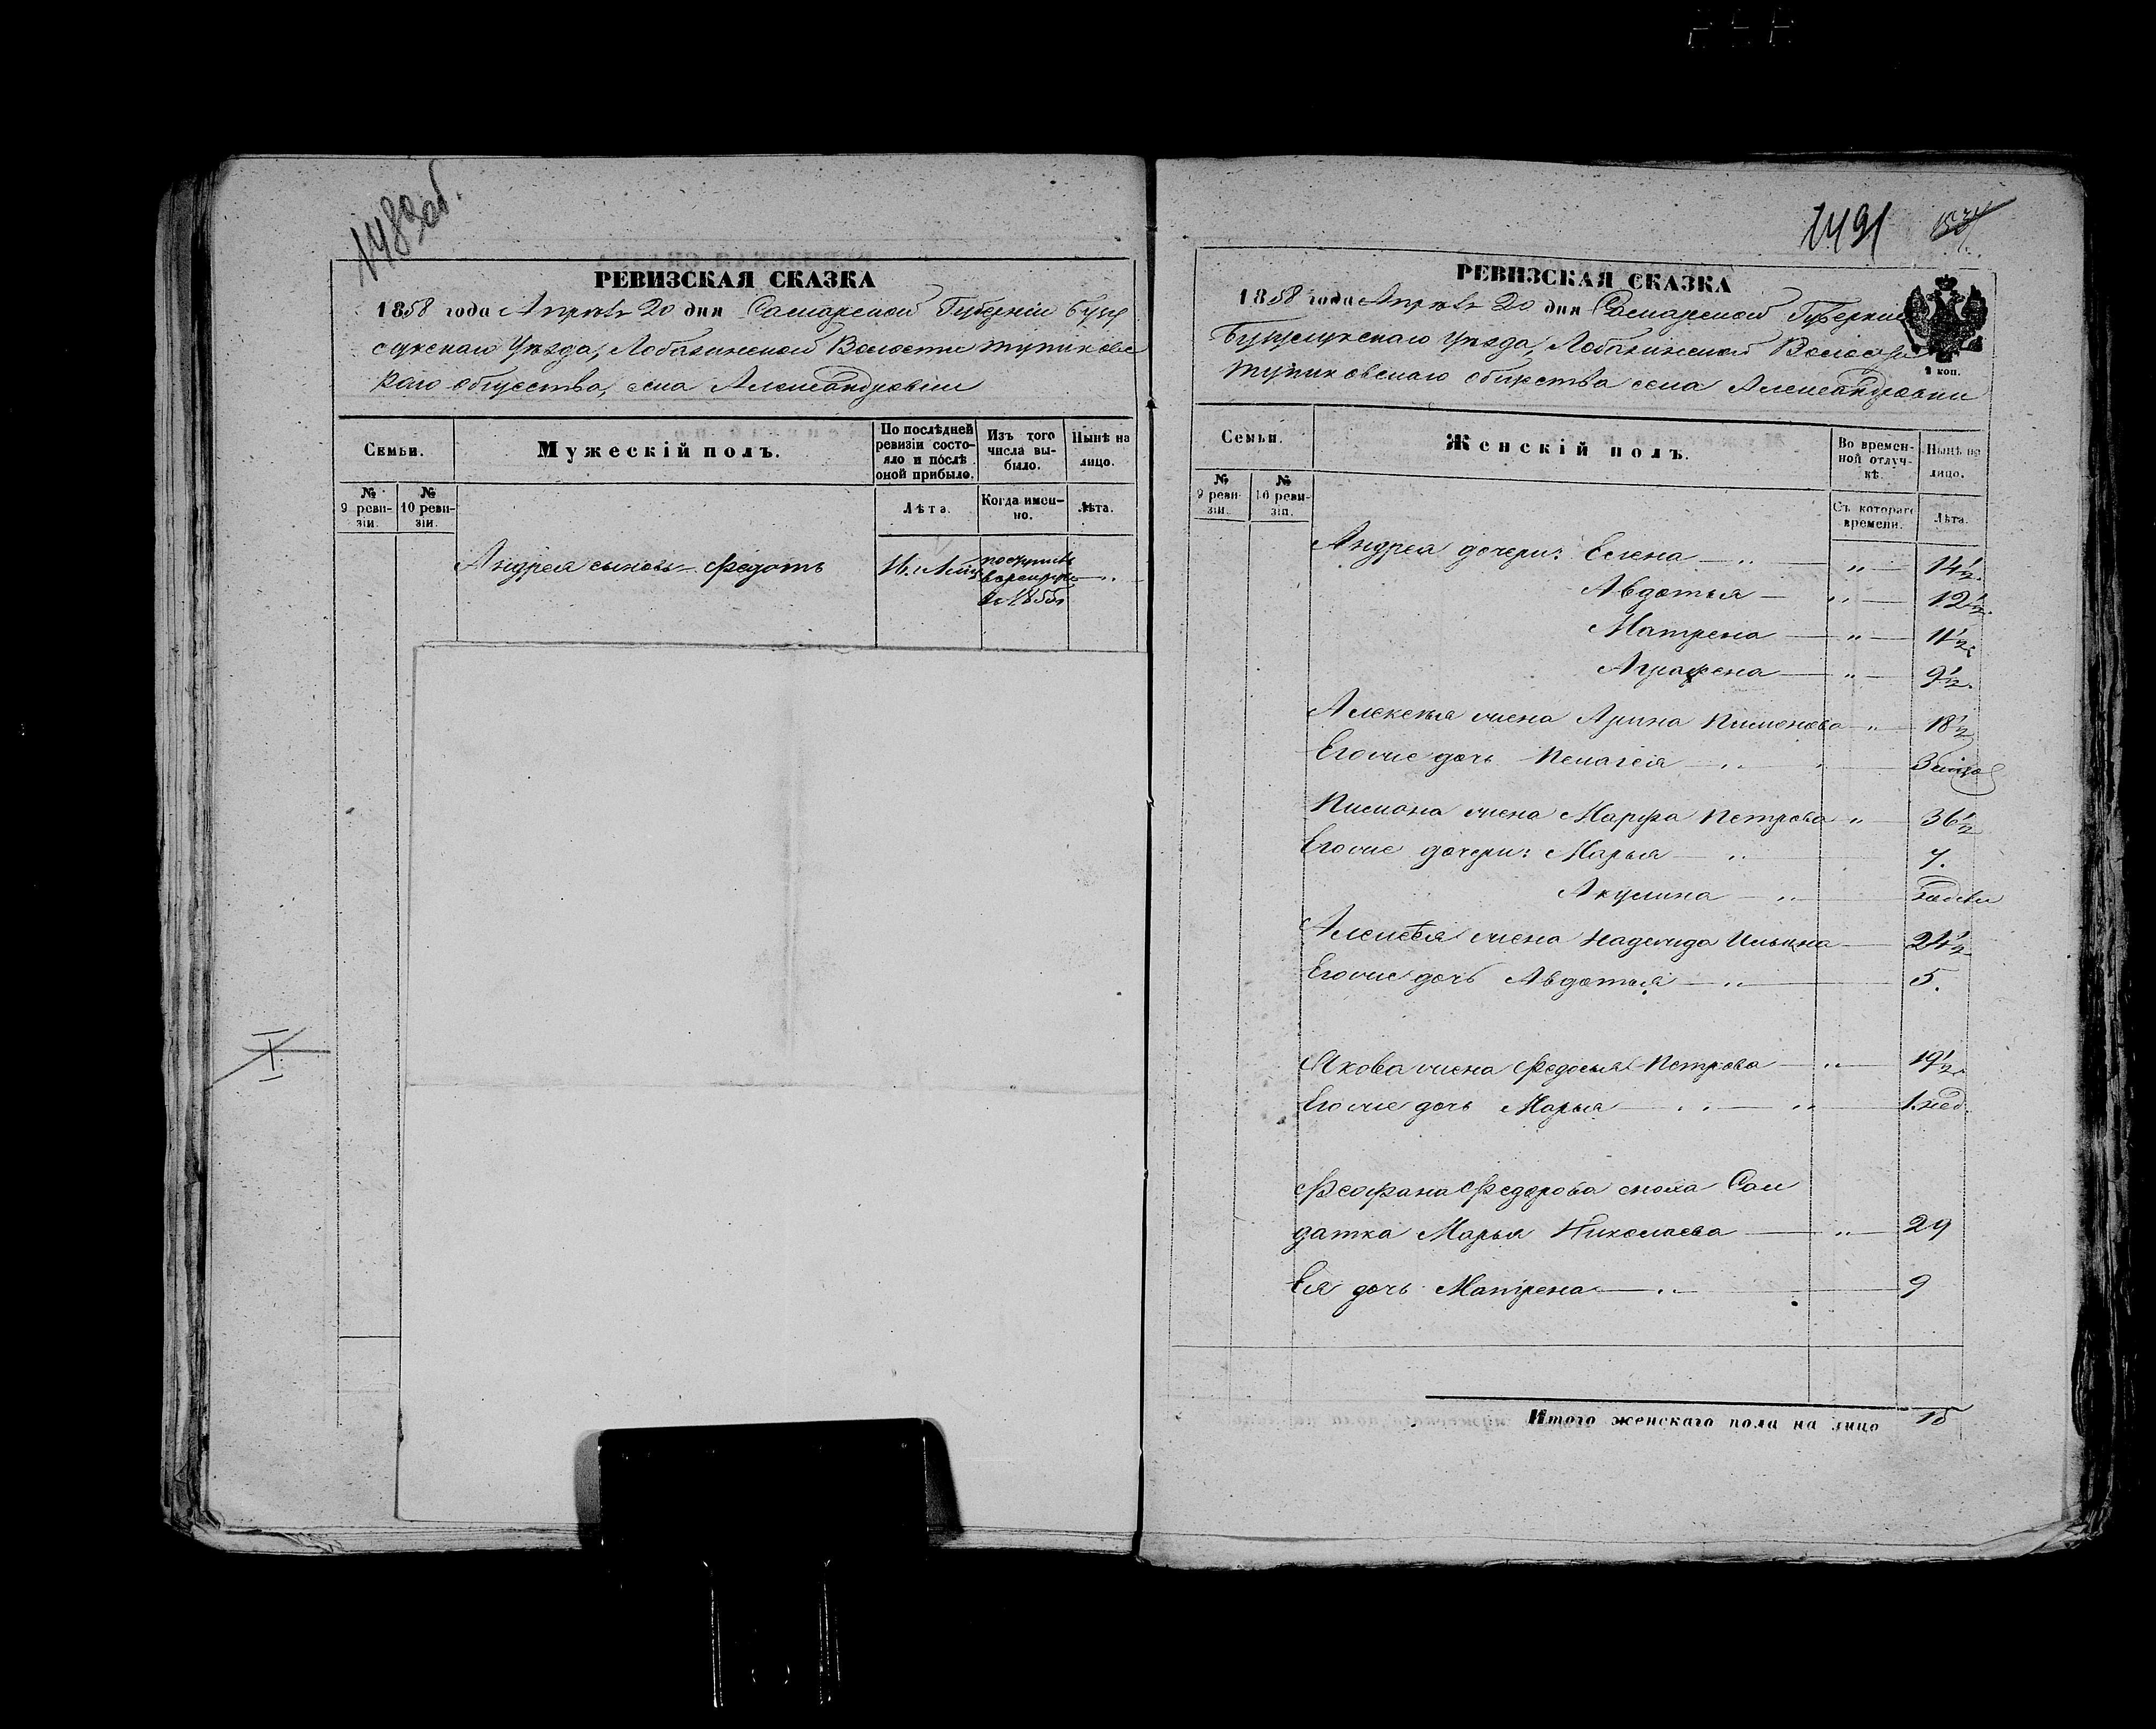 1483об.
РЕВИЗСКАЯ СКАЗКА
1858 года Апрѣля 20 дня Самарской Губерніи Бузу
лукскаго Уѣзда, Лобазинской Волости Тупиковс
каго общества, села Александровки
Семьи.
Мужескій полъ.
По послѣдней ревизіи состо-яло и послѣ оной прибыло.
Изъ того числа вы-было.
Нынѣ на лицо.
№ 9 реви-зіи.
№ 10 реви-зіи.
Лѣта.
Когда имен-но.
Лѣта.
Андрея сынов Федотъ
поступилъ
в рекруты
в 1855г
1491
РЕВИЗСКАЯ СКАЗКА
1858 года Апрѣля 20 дня Самарской Губерніи
Бузулукскаго Уѣзда, Лобазинской Волости
Тупиковскаго общества села Александровки
2 коп.
Семьи.
Женскій полъ.
Во времен-ной отлуч-кѣ.
Нынѣ на лицо.
№ 9 реви-зіи.
№ 10 реви-зіи.
Съ котораго времени.
Лѣта.
Андрея дочери: Елена — „ — 14½
Авдотья — „ — 12½
Матрена — „ — 11½
Аграфена — „ — 9½
Алексѣя жена Арина Пименова „ 18½
Его же дочь Пелагея — „ — 3
Пимона жена Марфа Петрова „ 36½
Его же дочери: Марья — „ 7.
Акулина — „
Алексея жена Надежда Ильина — 24½
Его же дочь Авдотья — „ — 5.
Якова жена Федосья Петрова — „ — 19½
Его же дочь Марья — „ — „ 1. нед.
Феофана Федорова сноха Сол
датка Марья Николаева — „ — 29
Ея дочь Матрена — „ — 9
Итого женскаго пола на лицо 15